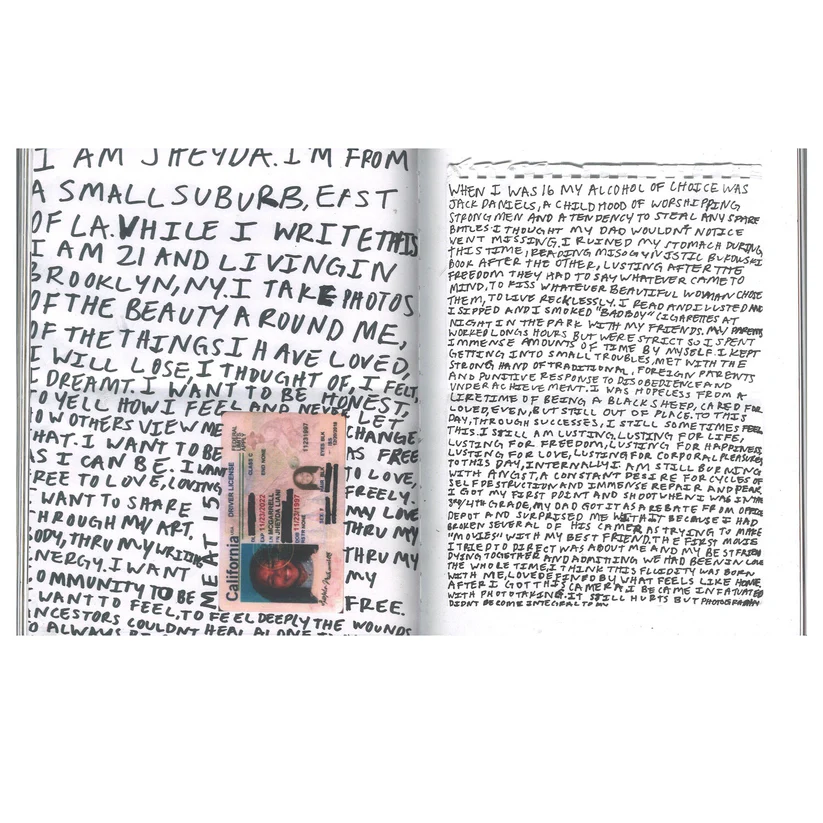 I AM SHEYDA. I'M FROM
A SMALL SUBURB, EAST
OF LA. WHILE I WRITE THIS
I AM 21 AND LIVING IN
BROOKLYN, NY. I TAKE PHOTOS
OF THE BEAUTY AROUND ME,
OF THE THINGS I HAVE LOVED,
I WILL LOSE, I THOUGHT OF, I FELT,
I DREAMT. I WANT TO BE HONEST,
TO YELL HOW I FEEL AND NEVER LET
HOW OTHERS VIEW ME CHANGE
THAT. I WANT TO BE AS FREE
AS I CAN BE. I WANT TO LOVE,
FREE TO LOVE, LOVING FREELY.
I WANT TO SHARE MY LOVE
THROUGH MY ART THRU MY
BODY, THRU MY WRITING THRU MY
ENERGY. I WANT MY
COMMUNITY TO BE FREE.
I WANT TO FEEL, TO FEEL DEEPLY THE WOUNDS
ANCESTORS COULDNT HEAL ALONE
TO ALWAYS BE
ME AT 15
California USA DRIVER LICENSE
FEDERAL LIMITS APPLY
CLASS C
EXP 11/23/2022 END NONE
LN MCDARRELL
DOB 11/23/1997
RSTR NONE
11231997
WHEN I WAS 16 MY ALCOHOL OF CHOICE WAS
JACK DANIELS, A CHILDHOOD OF WORSHIPPING
STRONG MEN AND A TENDENCY TO STEAL ANY SPARE
BOTTLES I THOUGHT MY DAD WOULDN'T NOTICE
WENT MISSING. I RUINED MY STOMACH DURING
THIS TIME, READING MISOGYNISTIC BUKOWSKI
BOOK AFTER THE OTHER, LUSTING AFTER THE
FREEDOM THEY HAD TO SAY WHATEVER CAME TO
MIND, TO KISS WHATEVER BEAUTIFUL WOMAN CHOSE
THEM, TO LIVE RECKLESSLY. I READ AND LUSTED AND
I SIPPED AND I SMOKED "BADBOY" CIGARETTES AT
NIGHT IN THE PARK WITH MY FRIENDS. MY PARENTS
WORKED LONGS HOURS BUT WERE STRICT SO I SPENT
IMMENSE AMOUNTS OF TIME BY MYSELF. I KEPT
GETTING INTO SMALL TROUBLES, MET WITH THE
STRONG HAND OF TRADITIONAL, FOREIGN PARENTS
AND PUNITIVE RESPONSE TO DISOBEDIENCE AND
UNDERACHIEVEMENT. I WAS HOPELESS FROM A
LIFETIME OF BEING A BLACK SHEEP, CARED FOR
LOVED, EVEN, BUT STILL OUT OF PLACE. TO THIS
DAY, THROUGH SUCCESSES, I STILL SOMETIMES FEEL
THIS. I STILL AM LUSTING. LUSTING FOR LIFE,
LUSTING FOR FREEDOM, LUSTING FOR HAPPINESS
LUSTING FOR LOVE, LUSTING FOR CORPORAL PLEASURES
TO THIS DAY, INTERNALLY I AM STILL BURNING
WITH ANGST, A CONSTANT DESIRE FOR CYCLES OF
SELF DESTRUCTION AND IMMENSE REPAIR AND PEAK
I GOT MY FIRST POINT AND SHOOT WHEN I WAS IN THE
3RD/4TH GRADE, MY DAD GOT IT AS A REBATE FROM OFFICE
DEPOT AND SURPRISED ME WITH IT BECAUSE I HAD
BROKEN SEVERAL OF HIS CAMERAS TRYING TO MAKE
"MOVIES" WITH MY BEST FRIEND. THE FIRST MOVIE
I TRIED TO DIRECT WAS ABOUT ME AND MY BEST FRIEND
DYING TOGETHER AND ADMITTING WE HAD BEEN IN LOVE
THE WHOLE TIME. I THINK THIS FLUIDITY WAS BORN
WITH ME, LOVE DEFINED BY WHAT FEELS LIKE HOME.
AFTER I GOT THIS CAMERA, I BECAME INFATUATED
WITH PHOTO TAKING. IT STILL HURTS BUT PHOTOGRAPHY
DIDNT BECOME INTEGRAL TO MY